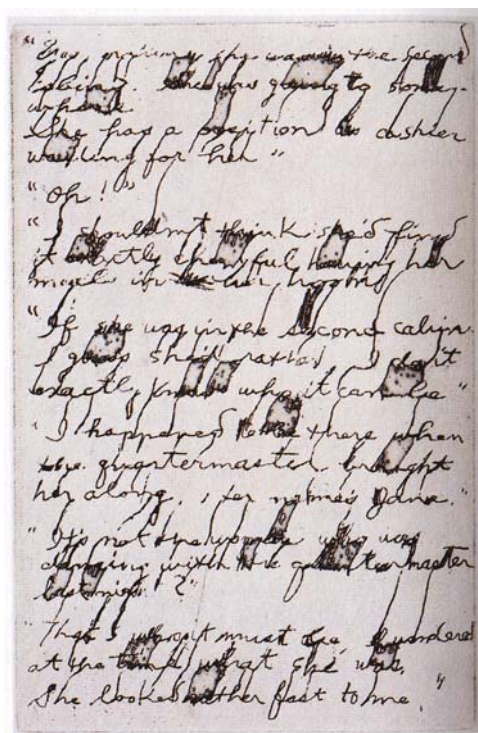 "
the second
She was going to some-
where
She has a position as cashier
waiting for her"
"Oh!"
"I shouldn't think she'd find
it exactly cheerful having her
meals in her room
"If she was in the second cabin.
she'd rather I don't
exactly know who it can be"
"I happened to be there when
the quartermaster brought
her along.
"It's not the woman who was
dancing with the quartermaster
last night?"
"That's who it must be. I wondered
at the time what she was.
She looked rather fast to me."